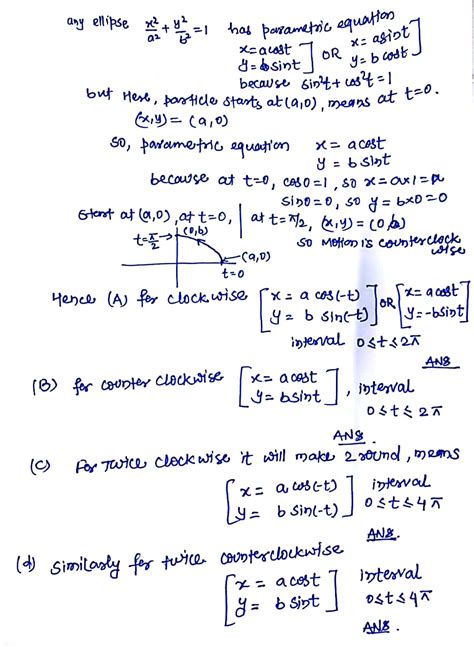 any ellipse x²/a² + y²/b² = 1 has parametric equation
x=acost
y=bsint ] OR x=asint
y=bcost ]
because sin²t + cos²t = 1
but Here, particle starts at (a,0), means at t=0.
(x,y) = (a,0)
so, parametric equation x = acost
y = bsint
because at t=0, cos0=1, so x=ax1=a
sin0=0, so y=bx0=0
Start at (a,0), at t=0, | at t=π/2, (x,y) = (0,b)
so Motion is counterclockwise
t=π/2 → (0,b)
(a,0)
t=0
Hence (A) for clockwise [ x = a cos(-t)
y = b sin(-t) ] OR [ x = acost
y = -bsint ]
interval 0≤t≤2π
ANS
(B) for counter clockwise [ x = acost
y = bsint ], interval
0≤t≤2π
ANS.
(C) For Twice clockwise it will make 2 round, means
[ x = a cos(-t)
y = b sin(-t) ] interval
0≤t≤4π
ANS.
(d) Similarly for twice counterclockwise
[ x = acost
y = bsint ] interval
0≤t≤4π
ANS.